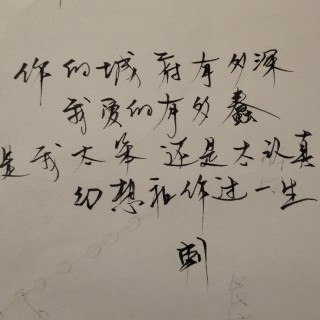 你的城府有多深
我爱的有多蠢
是我太笨还是太认真
幻想和你过一生